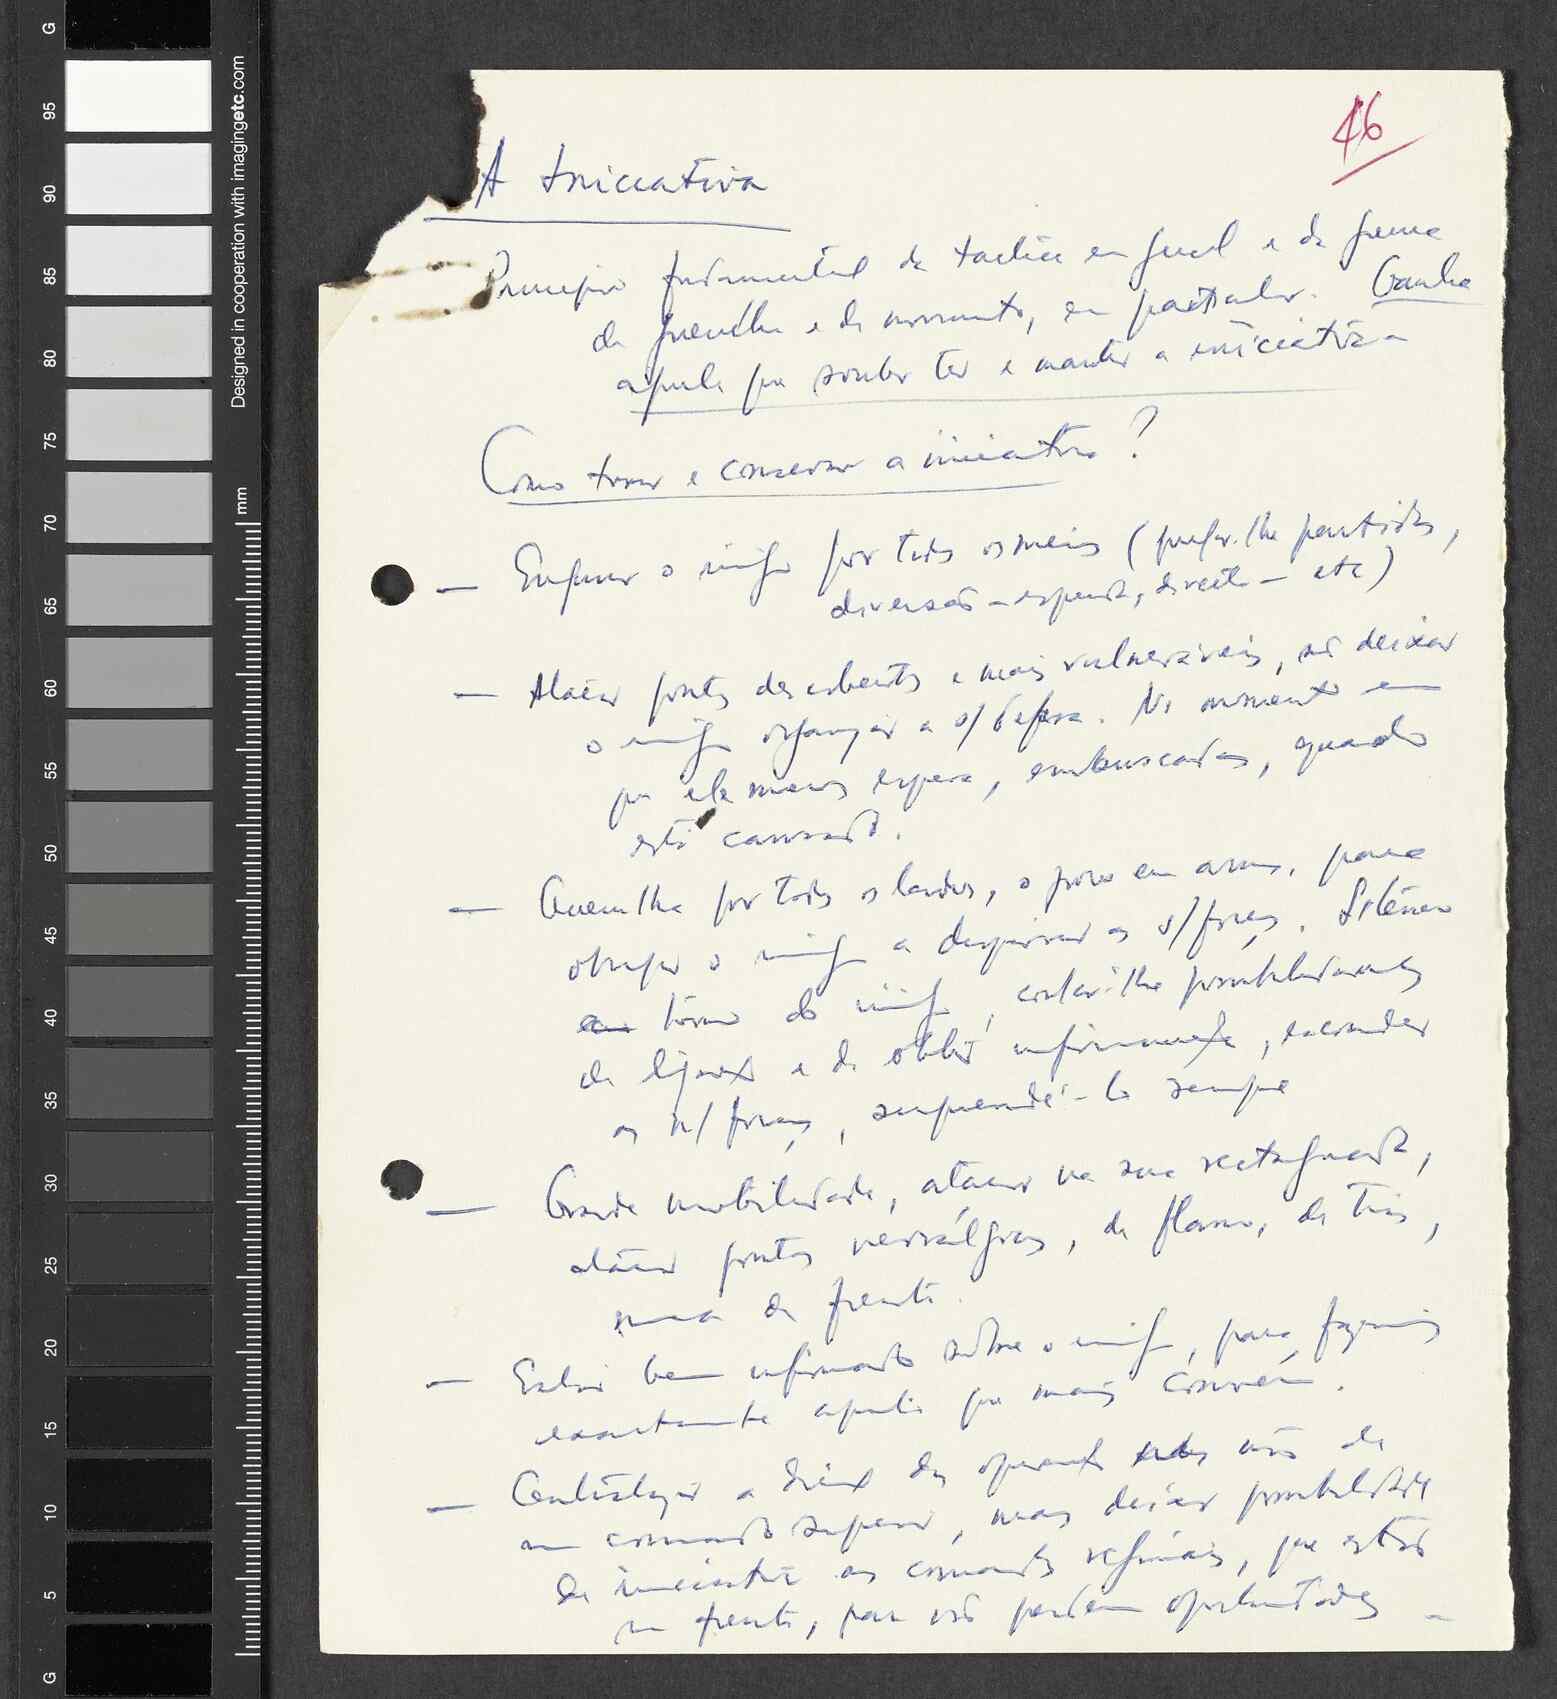 46
A Iniciativa
Princípio fundamental da táctica em geral e da guerra
de guerrilha e de movimento, em particular. Ganha
aquele que souber ter e manter a iniciativa
Como tomar e conservar a iniciativa?
— Enganar o inimigo por todos os meios (pregar-lhe partidas,
diversão – esquerda, direita – etc)
— Atacar pontos descobertos e mais vulneráveis, não deixar
o inimigo organizar a s/ defesa. No momento em
que ele menos espera, emboscadas, quando
está cansado.
— Guerrilha por todos os lados, o povo em armas, para
obrigar o inimigo a dispersar as s/ forças. Silêncio
em torno do inimigo, cortar-lhe possibilidades
de ligação e de obter informações, esconder
as n/ forças, surpreendê-lo sempre
— Grande mobilidade, atacar na sua rectaguarda,
atacar pontos nevrálgicos, de flanco, de trás,
nunca de frente.
— Estar bem informado sobre o inimigo, para fazermos
exactamente aquilo que mais convém.
— Centralizar a direcção das operações nas mãos de
um comando superior, mas deixar possibilidade
de iniciativa aos comandos regionais, que estão
na frente, para não perderem oportunidades –
Designed in cooperation with imagingetc.com
mm
G
95
90
85
80
75
70
65
60
55
50
45
40
35
30
25
20
15
10
5
G